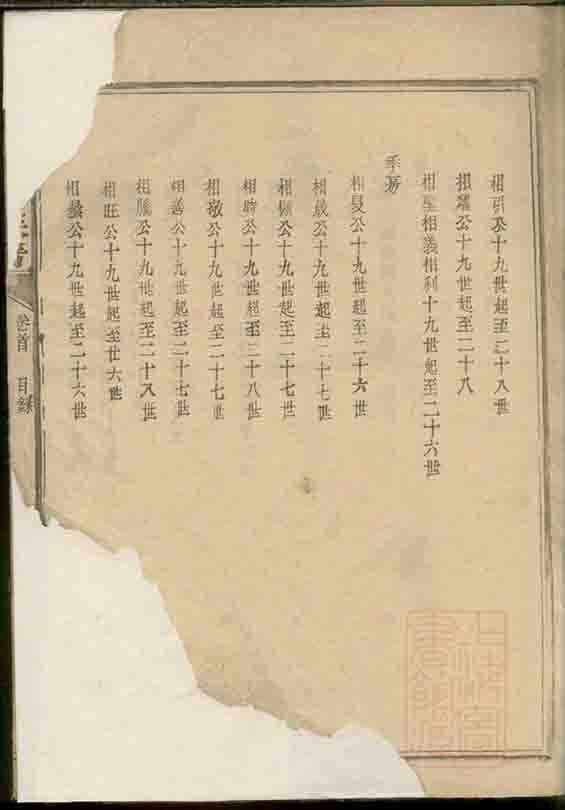 相引公十九世起至二十八世
相耀公十九世起至二十八
相聖相義相利十九世起至二十六世
季房
相旻公十九世起至二十六世
相成公十九世起至二十七世
相傾公十九世起至二十七世
相時公十九世起至二十八世
相敬公十九世起至二十七世
相善公十九世起至二十七世
相勝公十九世起至二十八世
相旺公十九世起至廿六世
相公十九世起至二十六世
卷首 目錄